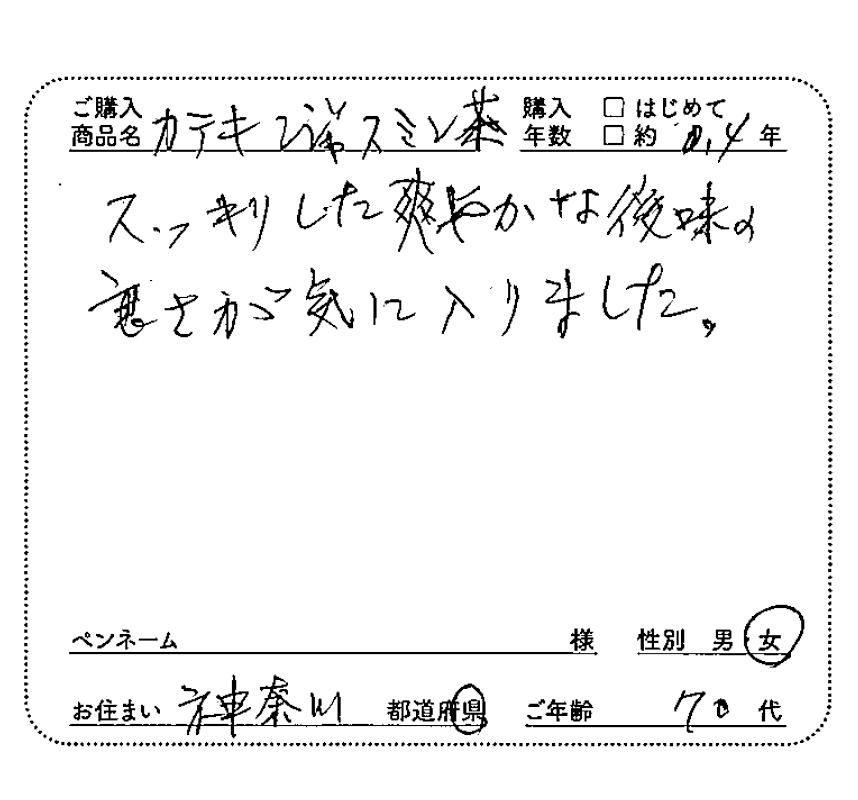 ご購入
商品名 カテキンジャスミン茶 購入
年数 □ はじめて
□ 約 0.4 年
スッキリした爽やかな後味の
さが気に入りました。
ペンネーム 様 性別 男 女
お住まい 神奈川 都道府県 ご年齢 70 代